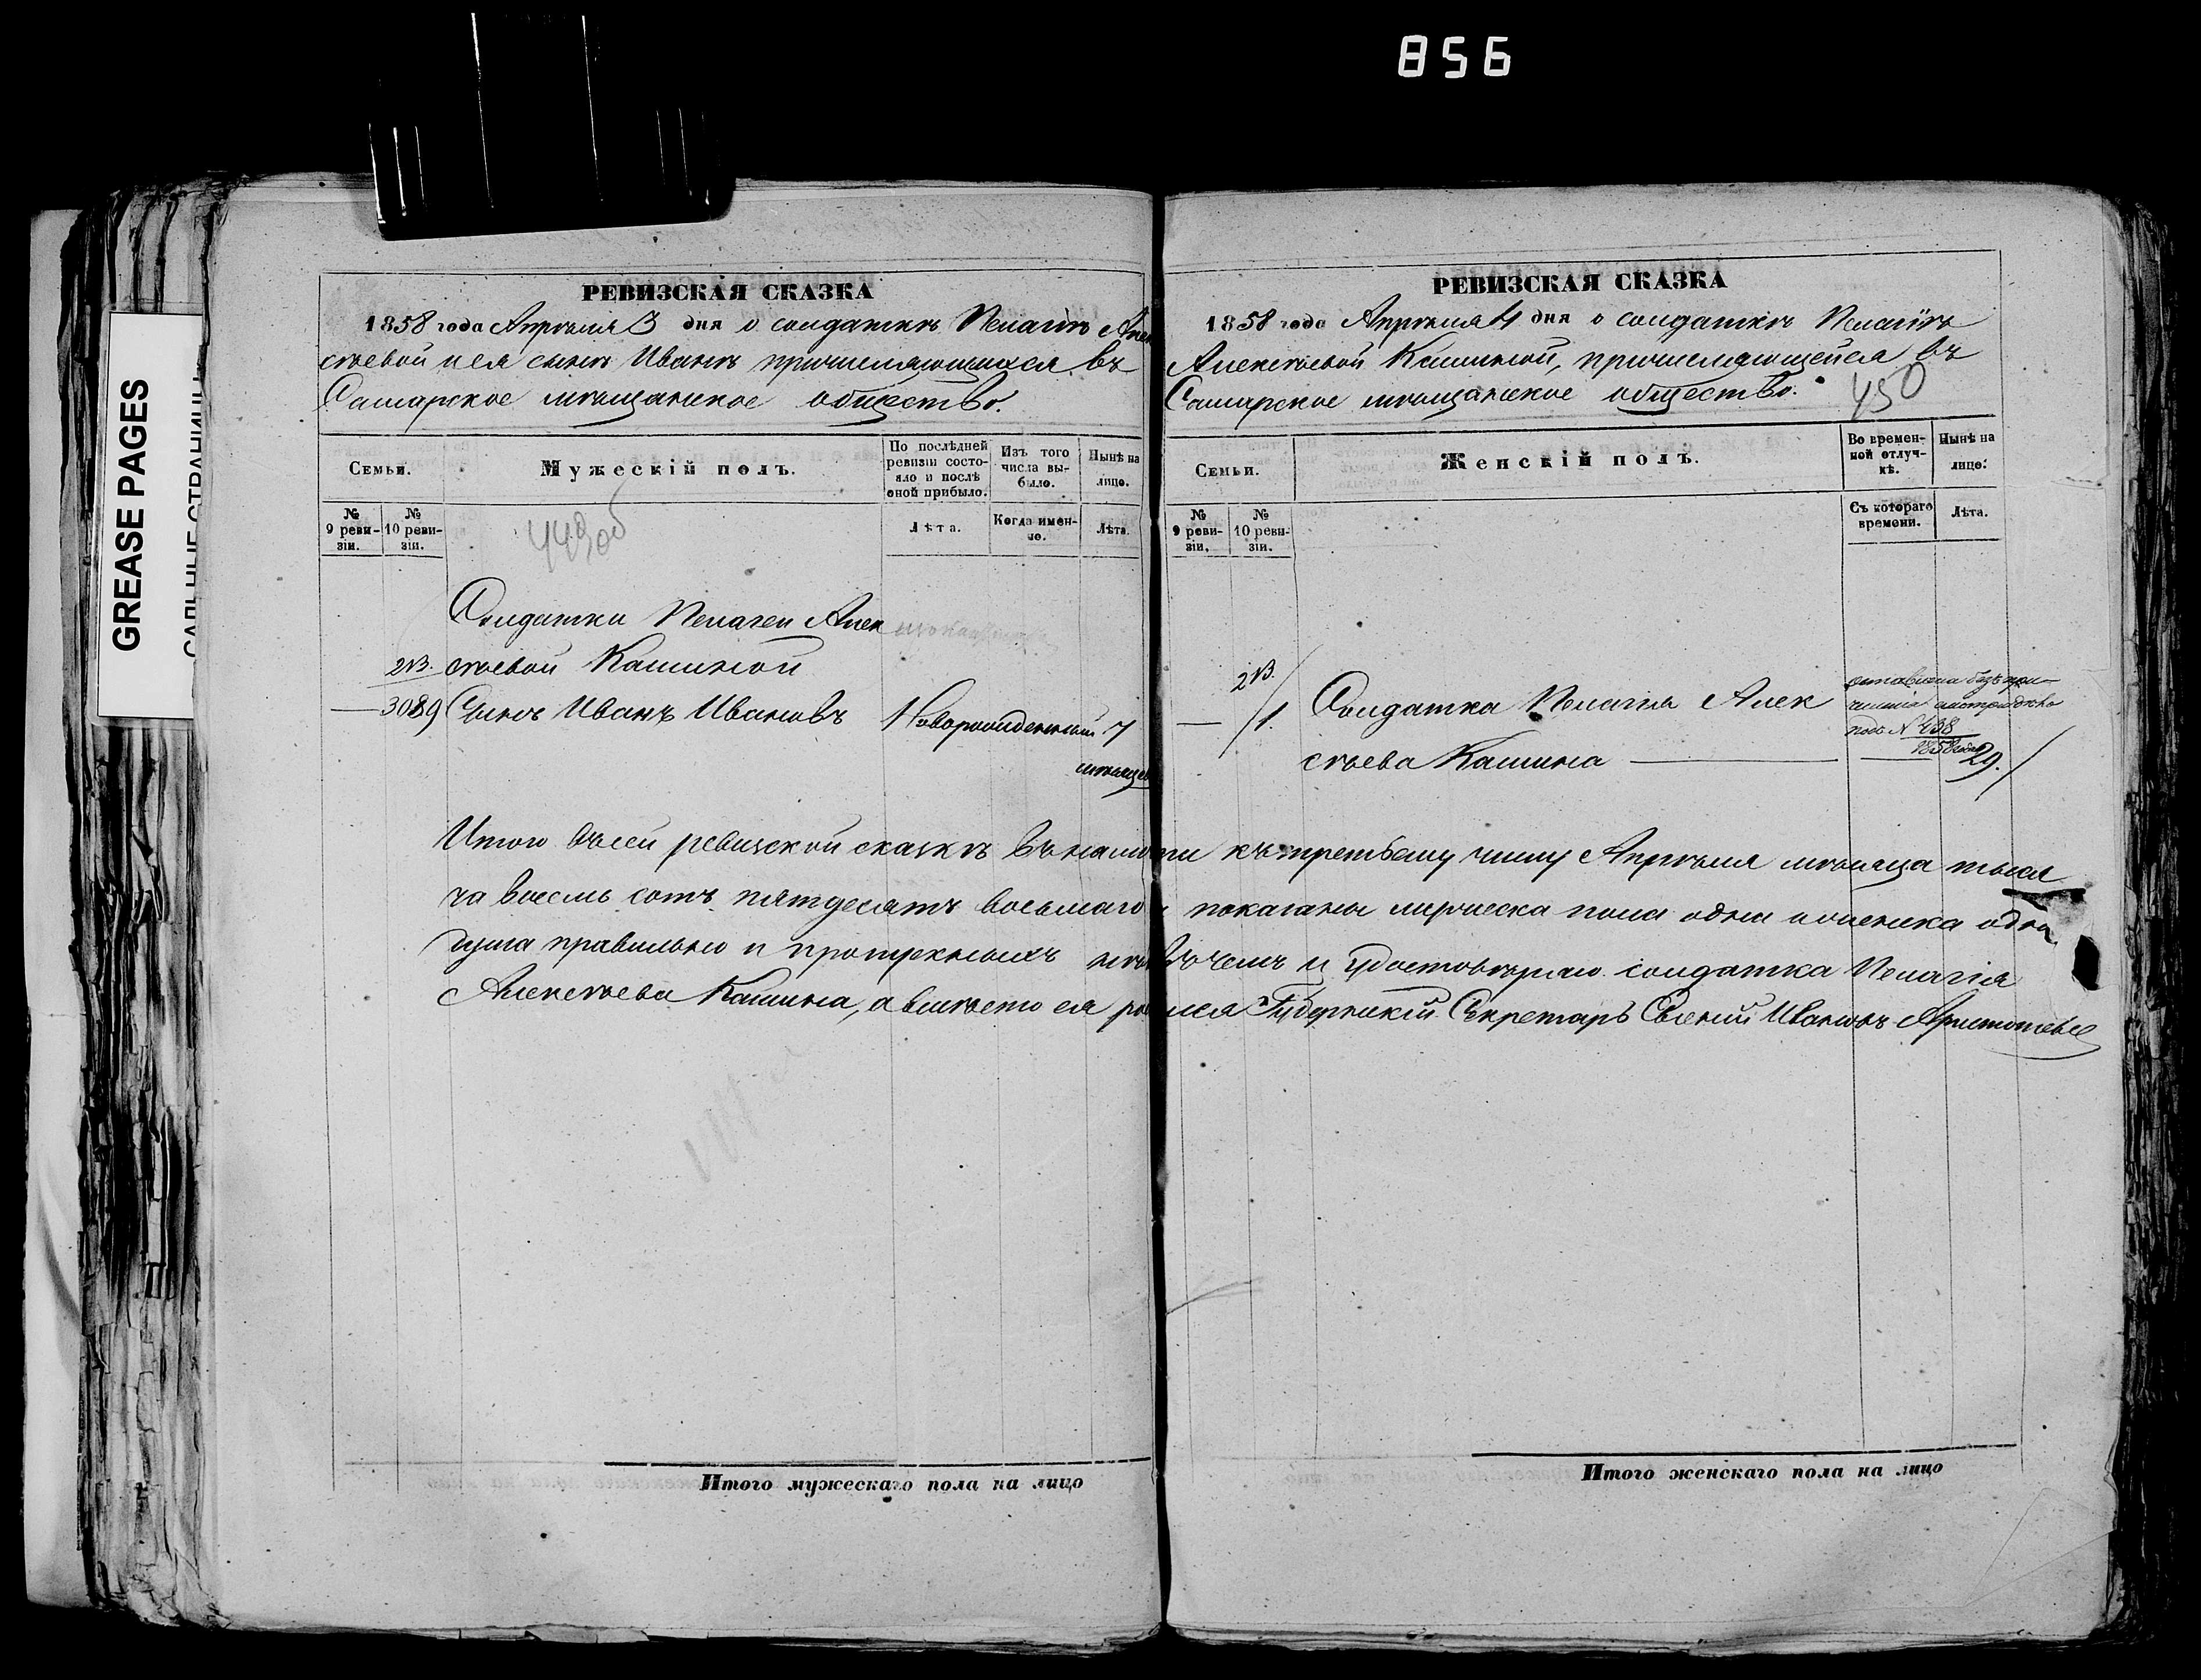 856
GREASE PAGES
РЕВИЗСКАЯ СКАЗКА
1858 года Апрѣля 3 дня о солдаткѣ Пелагіѣ Алек
сѣевой и ея сынѣ Иванѣ причисляющихся въ
Самарское мѣщанское общество.
Семьи.
Мужескій полъ.
По послѣдней ревизіи состояло и послѣ оной прибыло.
Изъ того числа выбыло.
Нынѣ на лицо.
№ 9 ревизіи.
№ 10 ревизіи.
Лѣта.
Когда именно.
Лѣта.
449 об
Солдатки Пелагеи Алек
сѣевой Кашиной
3089 Сынъ Иванъ Ивановъ Новорожденный 7
мѣсяцев
РЕВИЗСКАЯ СКАЗКА
1858 года Апрѣля 4 дня о солдаткѣ Пелагіѣ
Алексѣевой Кашиной, причисляющейся въ
Самарское мѣщанское общество.
450
Семьи.
Женскій полъ.
Во временной отлучкѣ.
Нынѣ на лицо.
№ 9 ревизіи.
№ 10 ревизіи.
Съ котораго времени.
Лѣта.
1. Солдатка Пелагія Алек
сѣева Кашина 29.
подъ № 438
1858 года
Итого въ сей ревизской сказкѣ въ къ третьему числу Апрѣля мѣсяца тыся
ча восемь сотъ пятдесятъ восьмаго показаны мужеска пола одна и женска одна
душа правильно и въ чемъ и удостовѣряю солдатка Пелагія
Алексѣева Кашина, а вмѣсто ея Губернскій Секретарь Ивановъ
Итого мужескаго пола на лицо
Итого женскаго пола на лицо